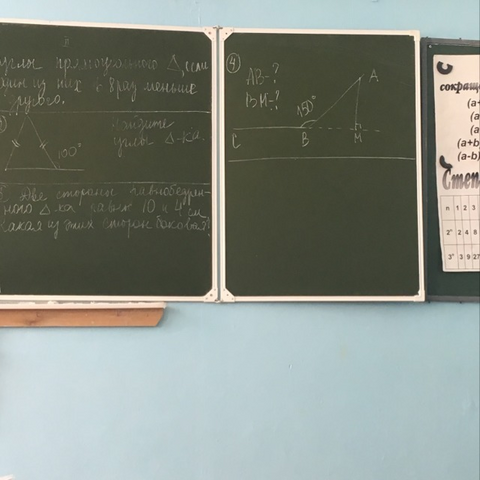 углы прямоугольного Δ, если
один из них в 8 раз меньше
другого.
Найдите
углы Δ-ка.
100°
Две стороны равнобедрен-
ного Δ-ка равны 10 и 4 см
какая из этих сторон боковая?
4
AB-?
BM-?
150°
A
C
B
M
сокраще
(a+
(a
(a
(a+b)
(a-b)
Степ
n 1 2 3
2ⁿ 2 4 8
3ⁿ 3 9 27